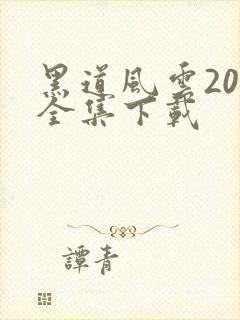 黑道风雲20
全集下載
譚青